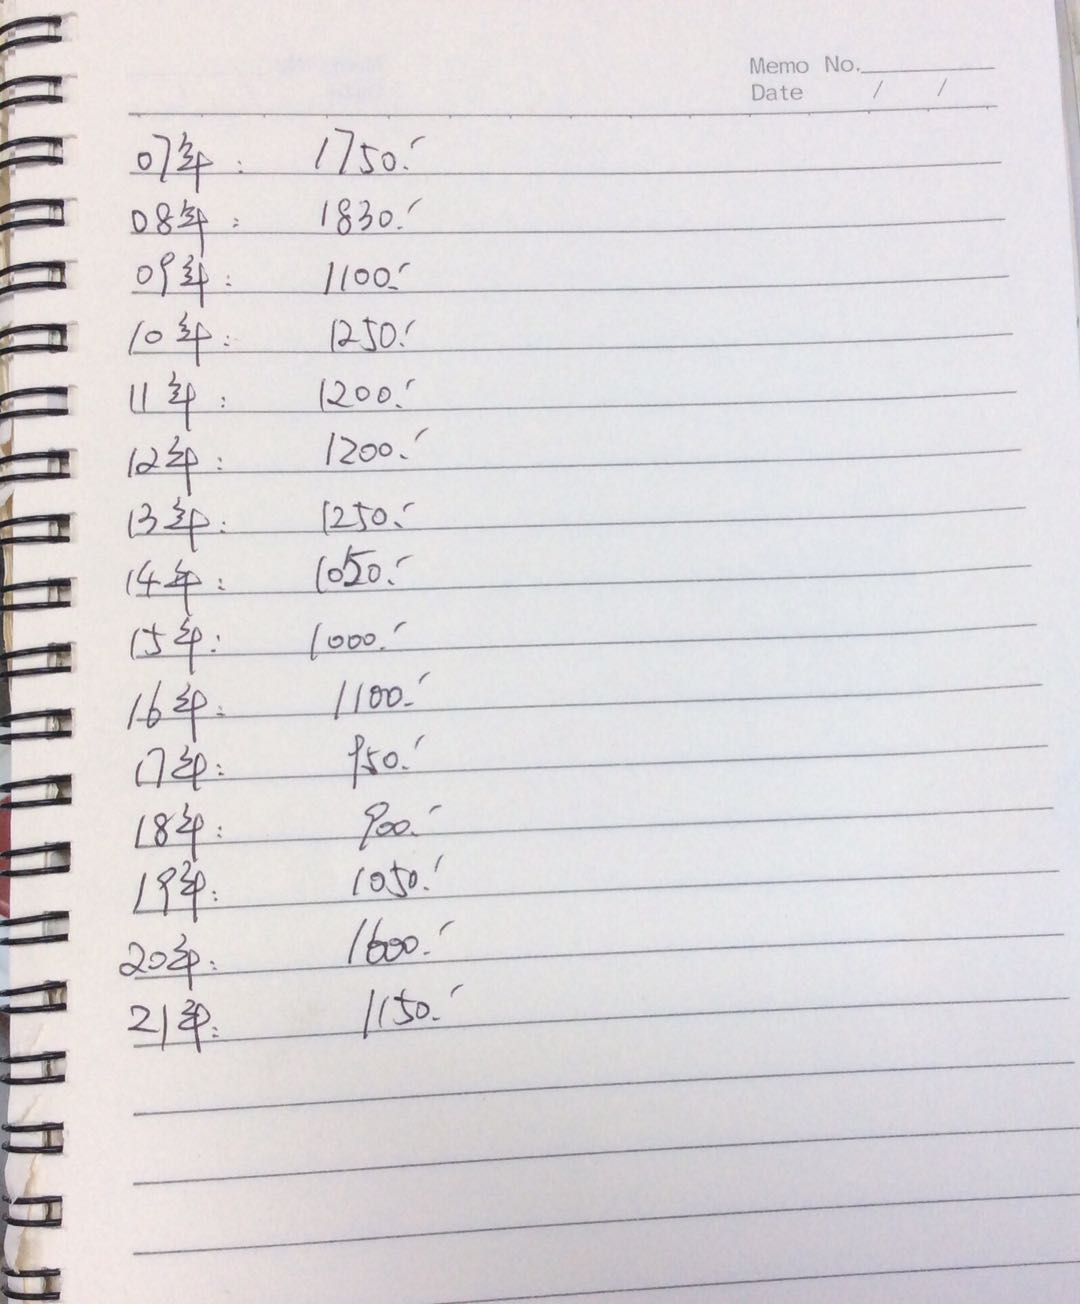 Memo No.
Date / /
07年: 1750.-
08年: 1830.-
09年: 1100.-
10年: 1250.-
11年: 1200.-
12年: 1200.-
13年: 1250.-
14年: 1050.-
15年: 1000.-
16年: 1100.-
17年: 950.-
18年: 900.-
19年: 1050.-
20年: 1600.-
21年: 1150.-